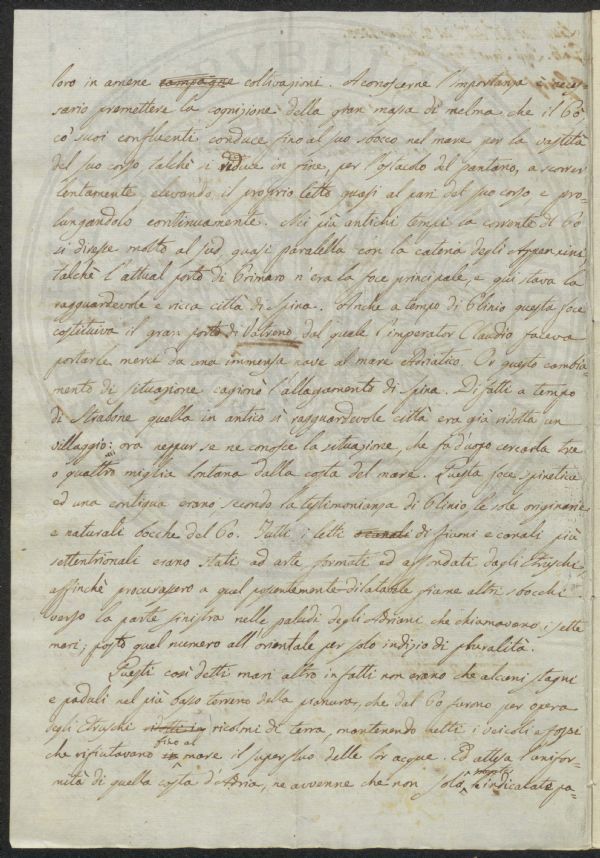 loro in amene campagne coltivazioni. A conoscerne l'importanza è neces-
sario premettere la cognizione della gran massa di melma che il Pò
co' suoi confluenti conduce fino al suo sbocco nel mare per la vastità
del suo corso talchè si riduce in fine, per l'ostacolo del pantano, a scorrer
lentamente elevando il proprio letto quasi al pari del suo corso e pro-
lungandolo continuamente. Nei più antichi tempi la corrente di Po
si diresse molto al sud, quasi paralella con la catena degli Appennini
talchè l'attual porto di Primaro n'era la foce principale, e qui stava la
ragguardevole e ricca città di Spina. Anche a tempo di Plinio questa foce
costituiva il gran porto di Vatreno dal quale l'imperator Claudio faceva
portarle merci da una immensa nave al mare Adriatico. Or questo cambia-
mento di situazione cagionò l'allagamento di Spina. Difatti a tempo
di Strabone quella in antico sì ragguardevole città era già ridotta un
villaggio: ora neppur se ne conosce la situazione, che fa d'uopo cercarla tre
o quattro miglia lontana dalla costa del mare. Questa foce spinetica
ed una contigua erano secondo la testimonianza di Plinio le sole originarie
e naturali bocche del Po. Tutti i letti o canali di fiumi e canali più
settentrionali erano stati ad arte formati ed affondati dagli Etruschi,
affinchè procurassero a quel possentemente dilatabile fiume altri sbocchi
verso la parte sinistra nelle paludi degli Adriani che chiamavano i sette
mari; posto quel numero all'orientale per solo indizio di pluralità.
Questi così detti mari altro in fatti non erano che alcuni stagni
e paduli nel più basso terreno della pianura, che dal Po furono per opera
degli Etruschi ricolmi di terra, mantenendo netti i veicoli e fosse
che rifiutavano fino al mare il superfluo delle lor acque. Ed attesa l'unifor-
mità di quella costa d'Adria, ne avvenne che non solo indicate pa-